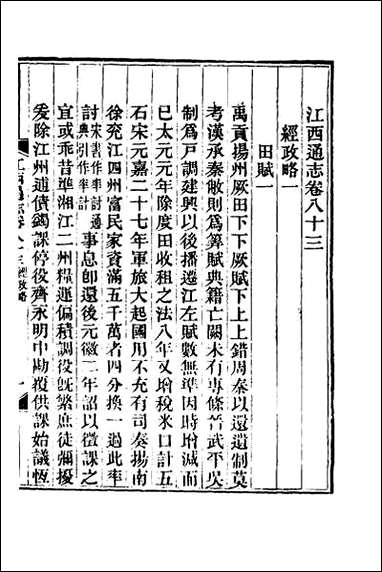 江西通志卷八十三
經政略一
田賦一
禹貢揚州厥田下下厥賦下上上錯周秦以還遺制莫
考漢承秦敝則爲算賦典籍亡闕未有專條晉武平吳
制爲戸調建興以後播遷江左賦數無準因時增減而
已太元元年除度田收租之法八年又增稅米口計五
石宋元嘉二十七年軍旅大起國用不充有司奏揚南
徐兗江四州富民家資滿五千萬者四分換一過此率
討宋書作率討通典引作率計事息卽還後元徽二年詔以徵課之
宜或乖昔準湘江二州糧運偏積調役旣繁庶徒彌擾
爰除江州逋債蠲課停役齊永明中勘覆供課始議恆
江西通志卷八十三 經政略 一